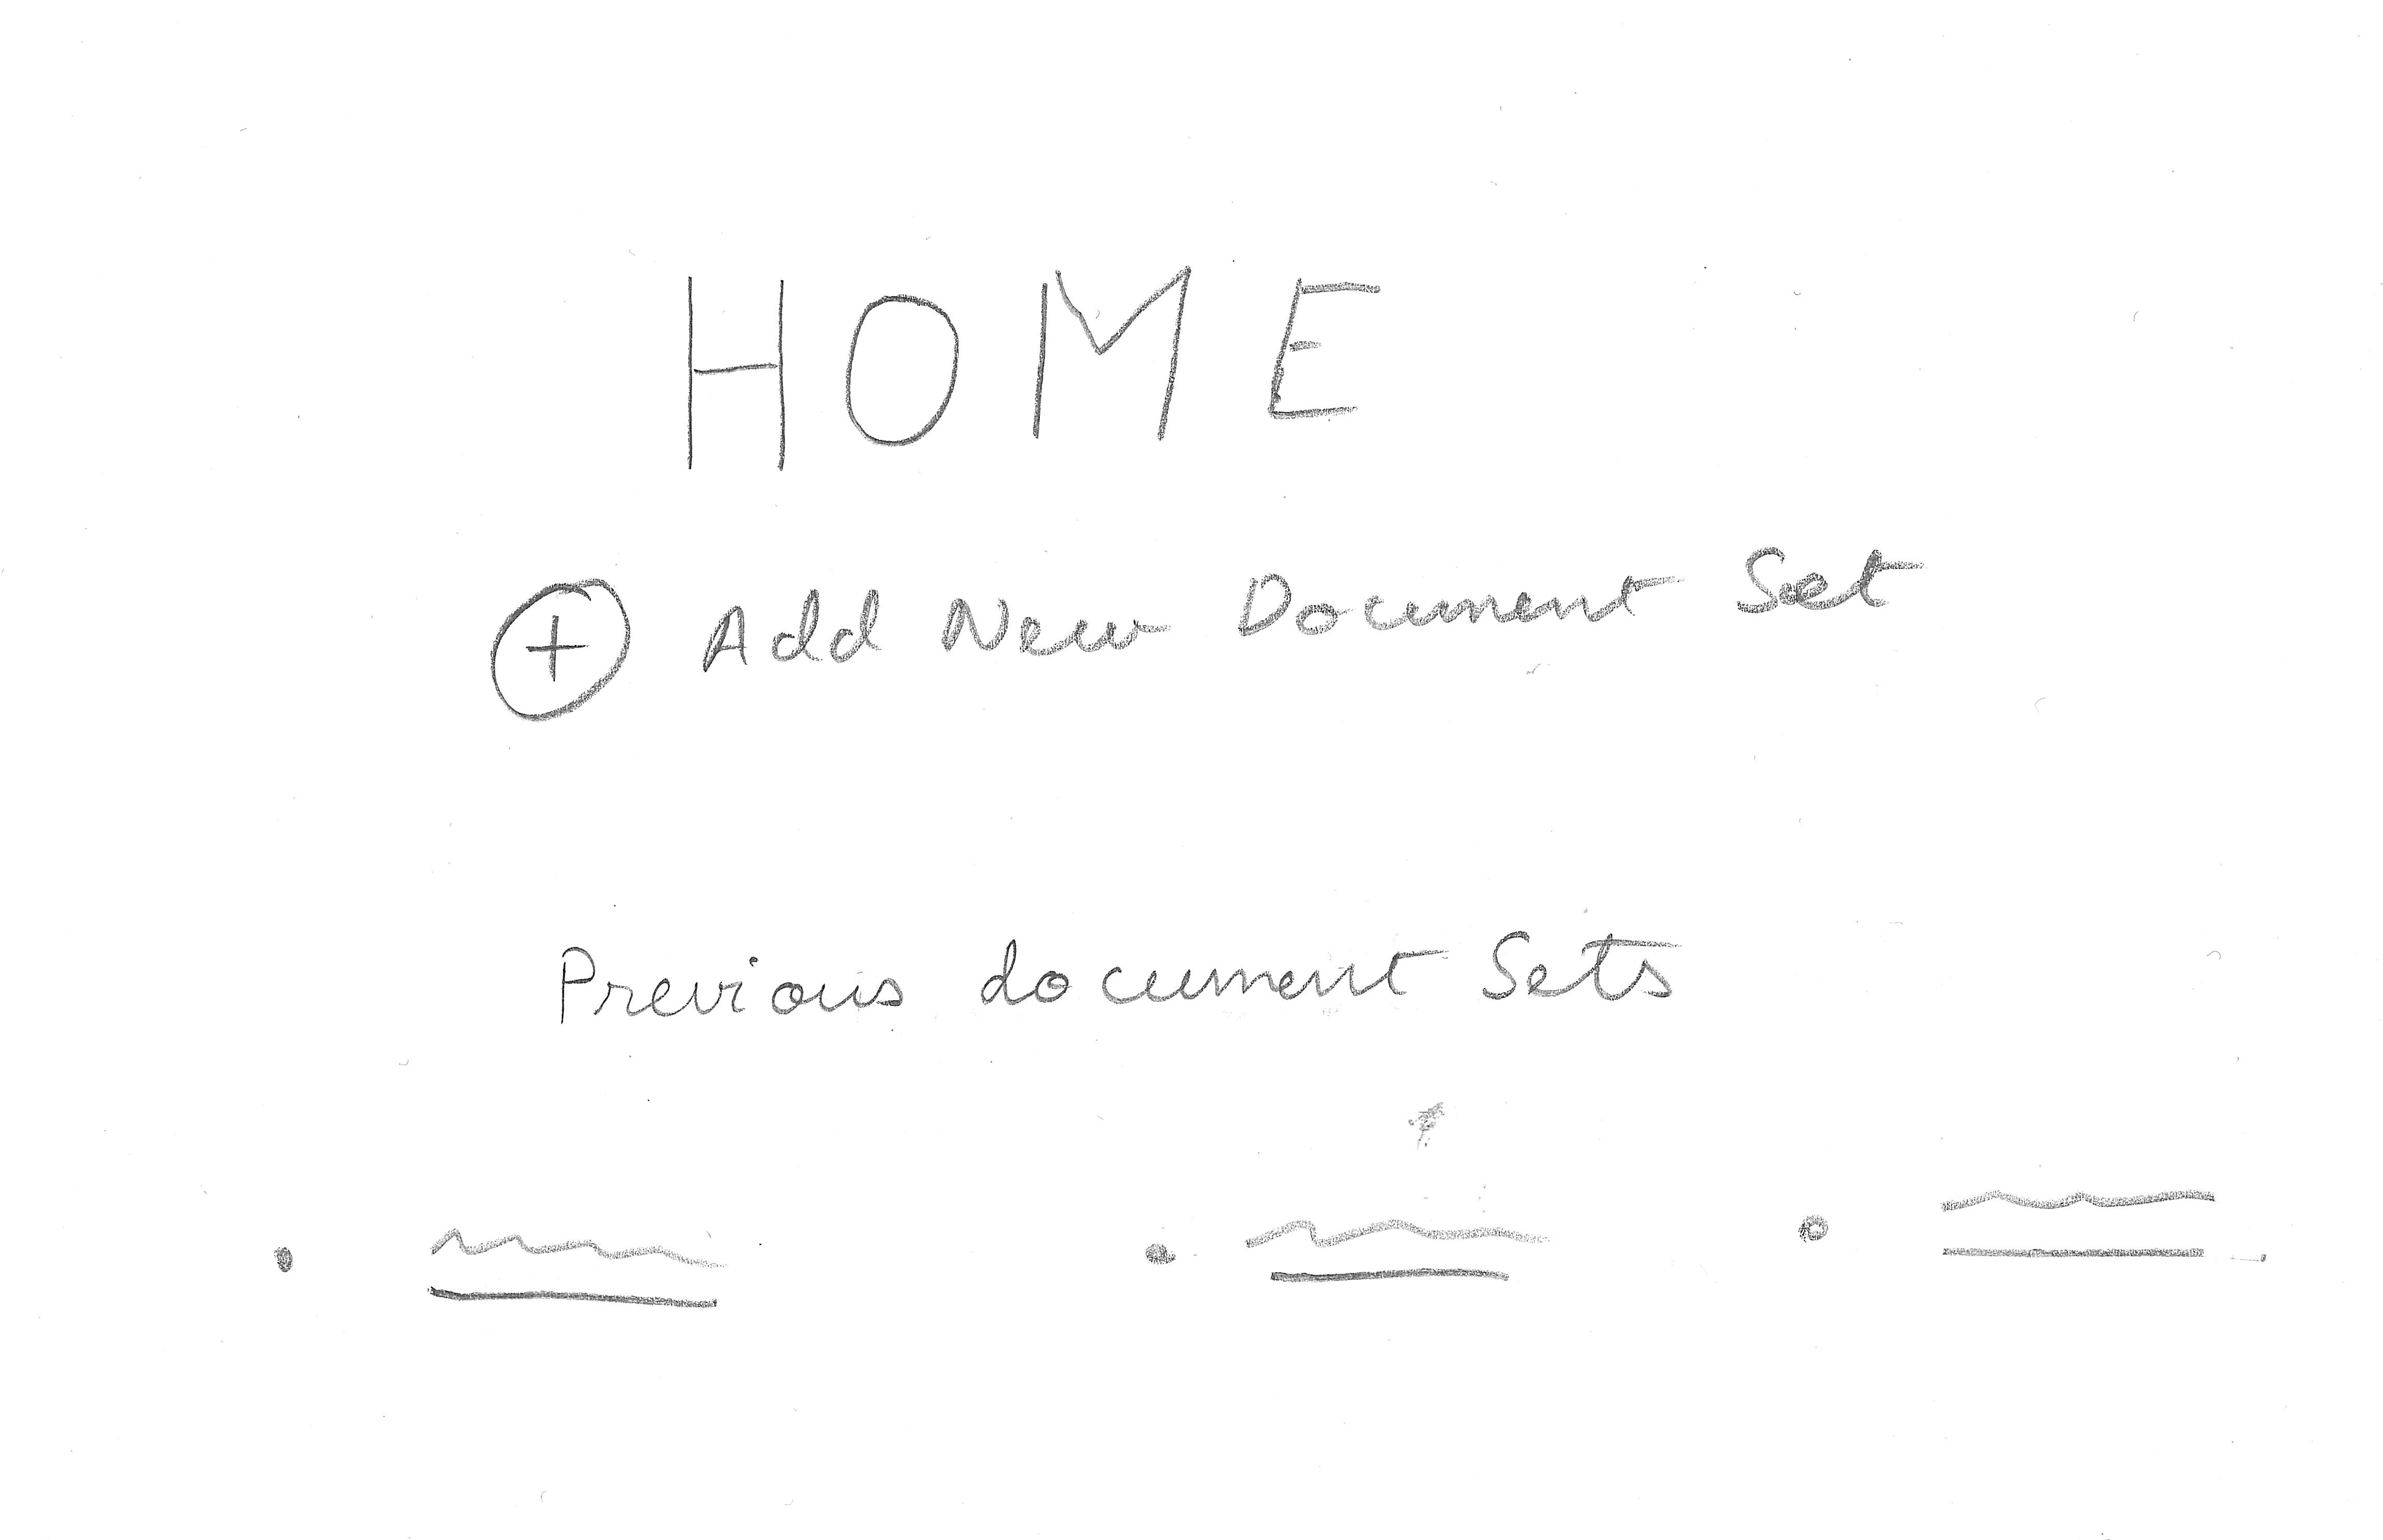 HOME
+ Add New Document Set
Previous document Sets